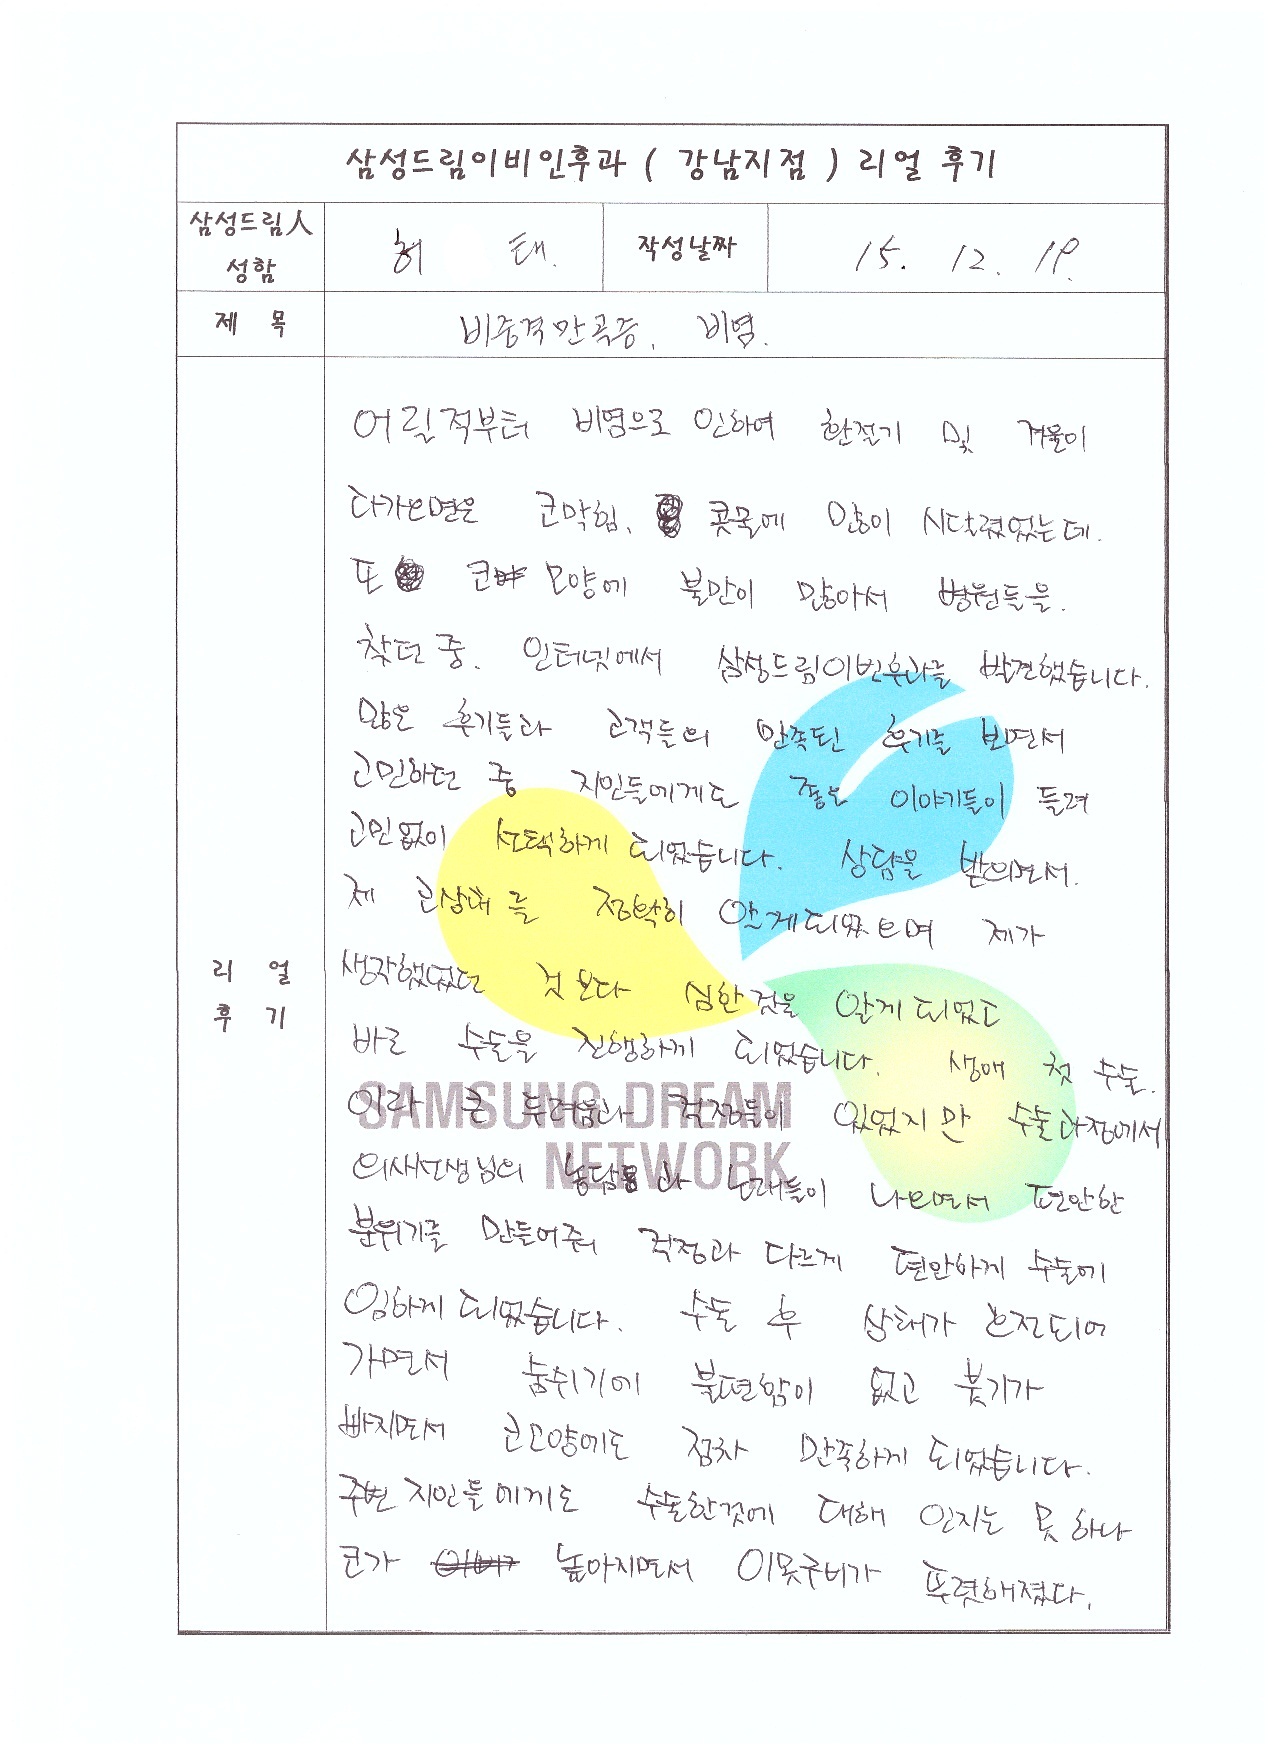 삼성드림이비인후과 ( 강남지점 ) 리얼 후기
삼성드림人 성함
허 태.
작성날짜
15. 12. 19.
제 목
비중격만곡증, 비염.
리 얼 후 기
어릴적부터 비염으로 인하여 환절기 및 겨울이
다가오면은 코막힘, 콧물에 많이 시달렸었는데.
또 코 모양에 불만이 많아서 병원들을.
찾던 중. 인터넷에서 삼성드림이빈후과를 발견했습니다.
많은 후기들과 고객들의 만족된 후기를 보면서
고민하던 중 지인들에게도 좋은 이야기들이 들려
고민없이 선택하게 되었습니다. 상담을 받으면서.
제 코상태를 정확히 알게되었으며 제가
생각했었던 것 보다 심한것을 알게 되었고
바로 수술을 진행하게 되었습니다. 생애 첫 수술.
이라 큰 두려움과 걱정들이 있었지만 수술과정에서
의사선생님의 농담과 노래들이 나오면서 편안한
분위기를 만들어줘 걱정과 다르게 편안하게 수술에
임하게 되었습니다. 수술 후 상태가 호전되어
가면서 숨쉬기에 불편함이 없고 붓기가
빠지면서 코모양에도 점차 만족하게 되었습니다.
주변 지인들에게도 수술한것에 대해 인지는 못 하나
코가 높아지면서 이목구비가 뚜렷해졌다.
SAMSUNG DREAM
NETWORK